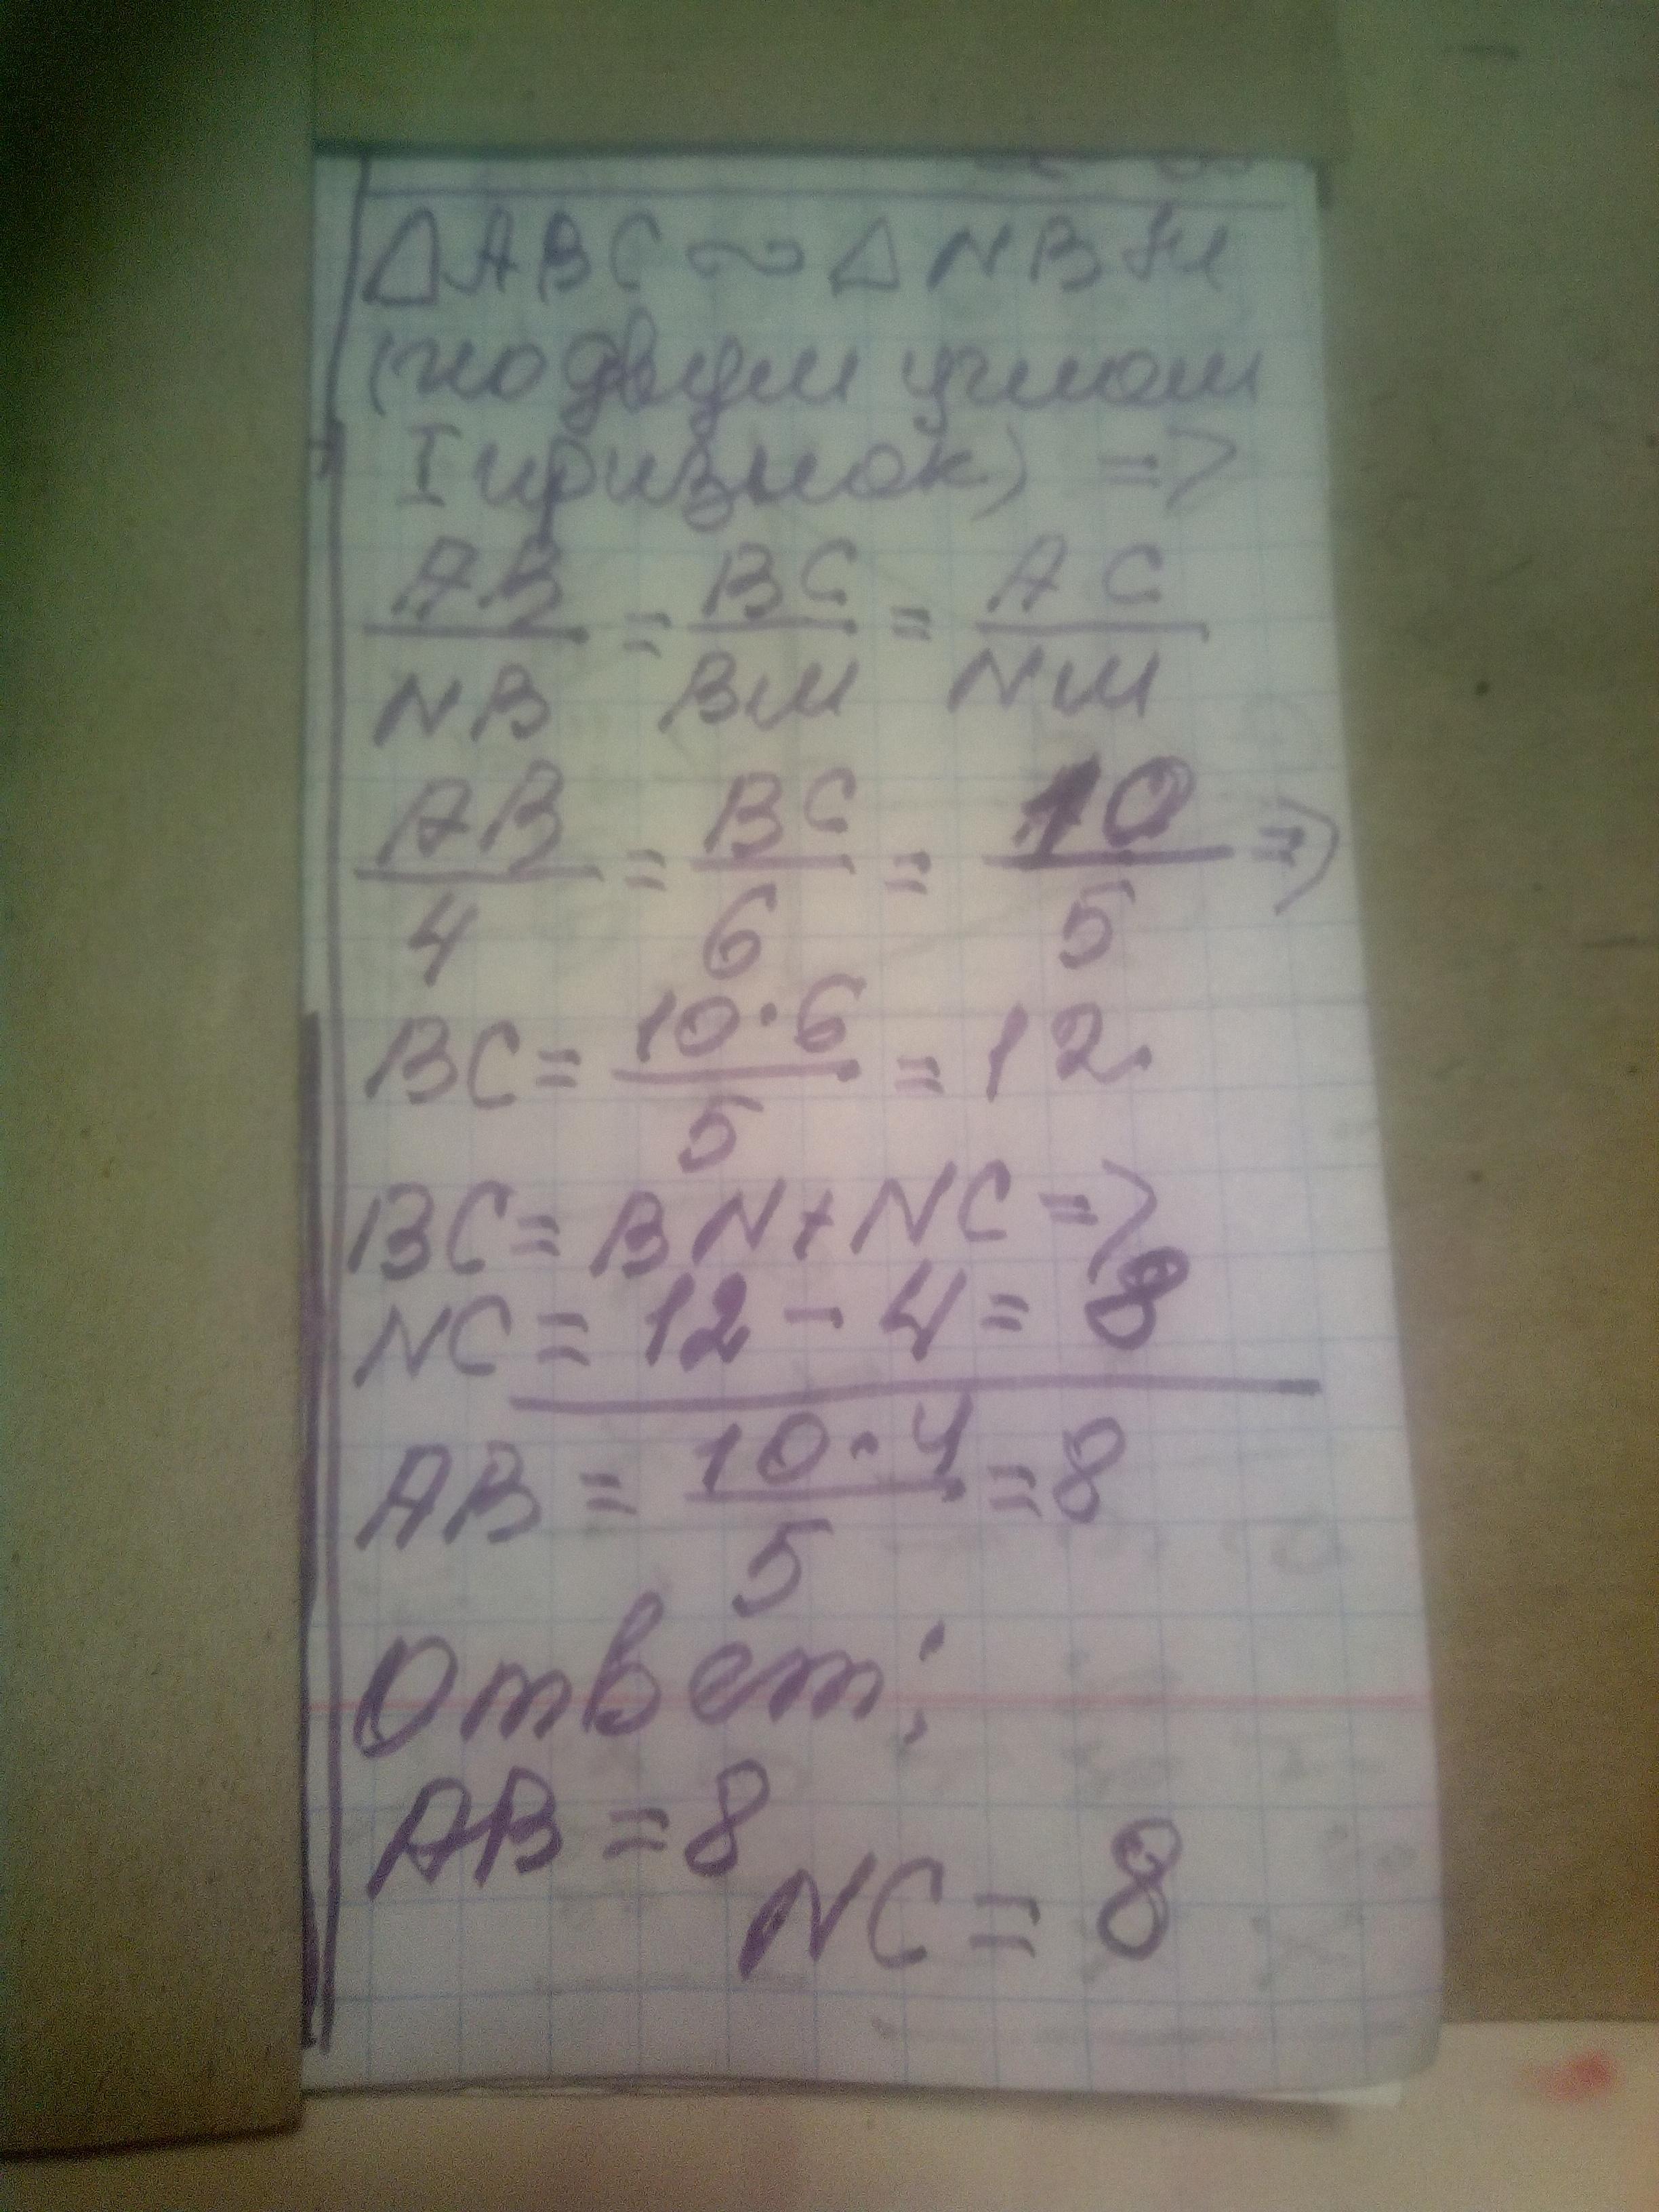 △ABC ∾ △NBM
(по двум углам
I признак) =>
AB/NB = BC/BM = AC/NM
AB/4 = BC/6 = 10/5 =>
BC = 10·6/5 = 12
BC = BN + NC =>
NC = 12 - 4 = 8
AB = 10·4/5 = 8
Ответ:
AB = 8
NC = 8